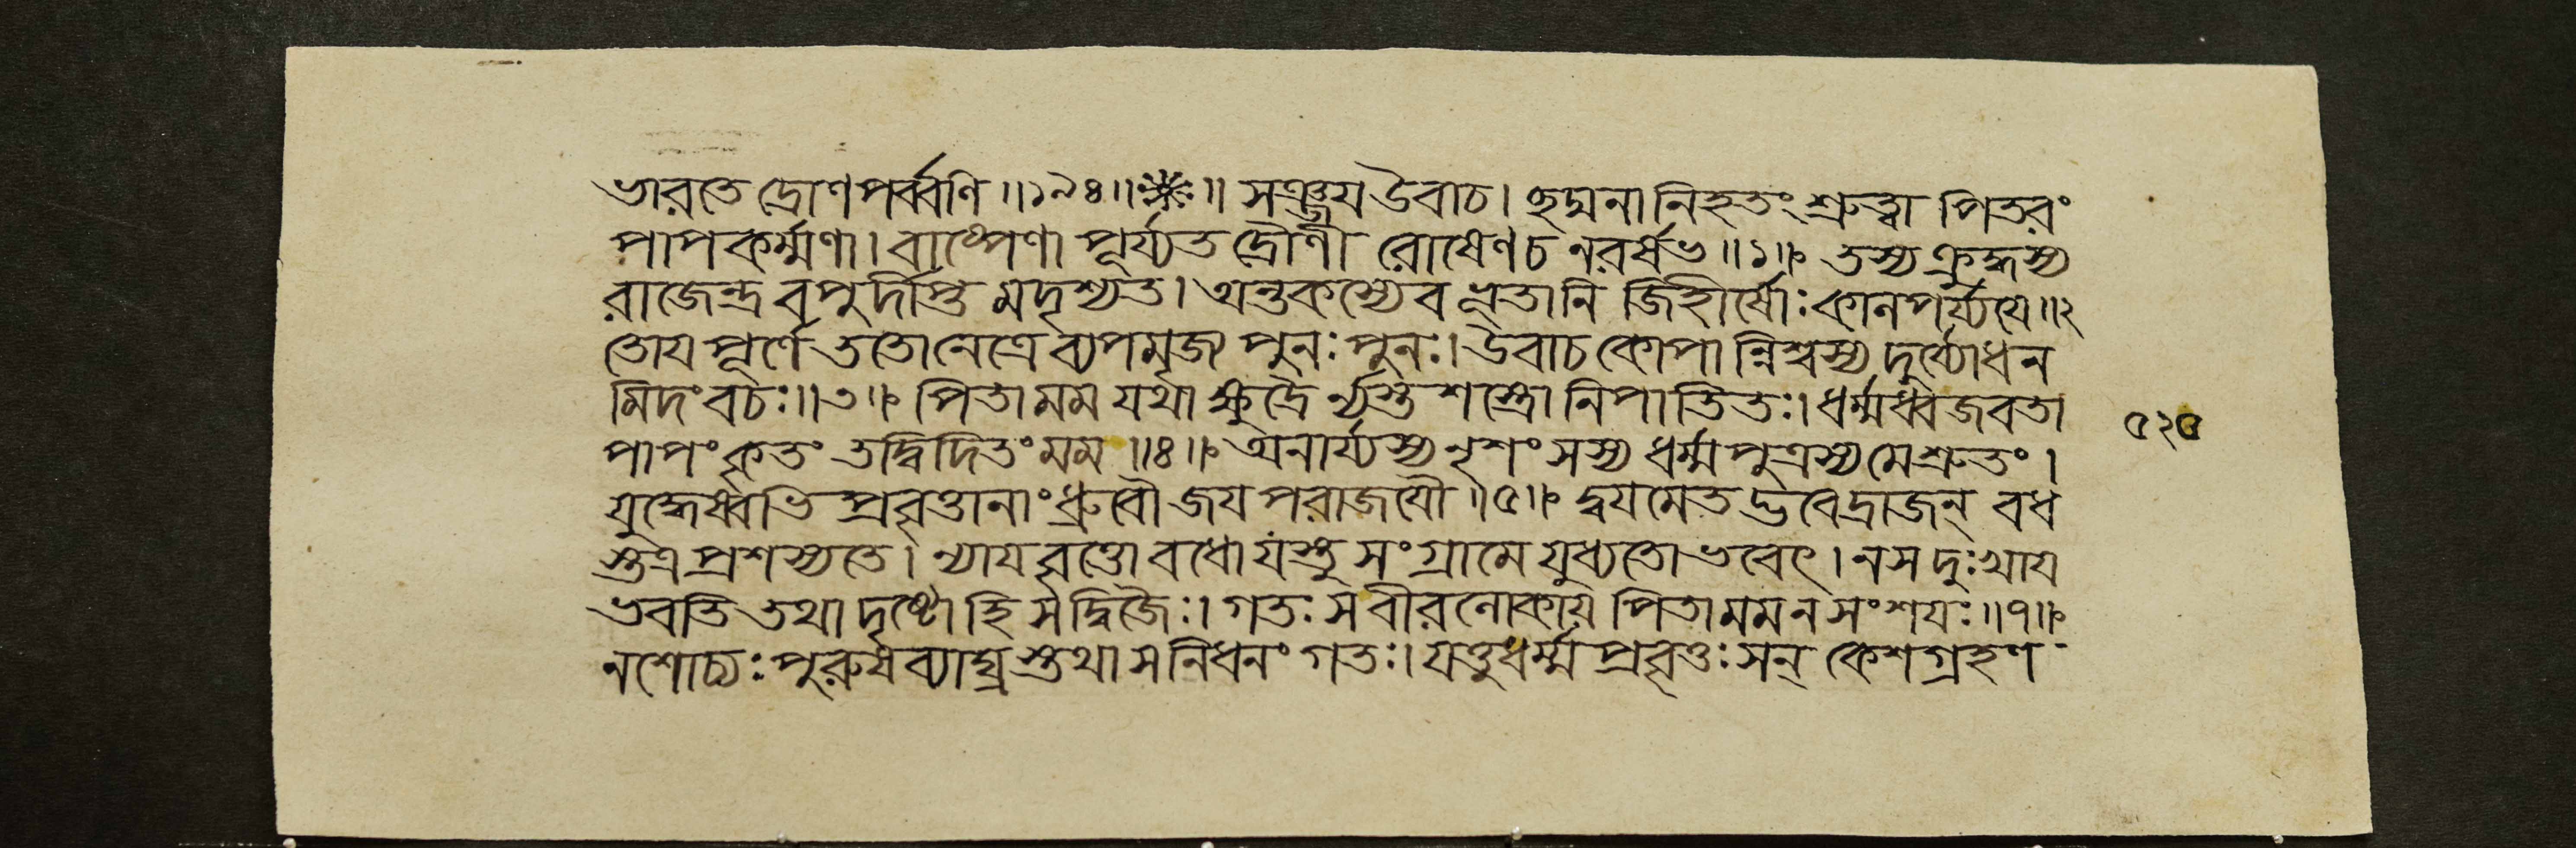 ভারতে দ্রোণপর্ব্বণি॥১৯৪॥❋॥ সঞ্জয উবাচ। ছদ্মনা নিহতং শ্রুত্বা পিতরং
পাপকর্ম্মণা। বাষ্পেণাপূর্য্যত দ্রৌণী রোষেণ চ নরর্ষভ॥১॥ তস্য ক্রুদ্ধস্য
রাজেন্দ্র বপুর্দীপ্তমদৃশ্যত। অন্তকস্যেব ভূতানি জিহীর্ষোঃ কালপর্য্যযে॥২
তোযপূর্ণে ততো নেত্রে ব্যপমৃজ্য পুনঃ পুনঃ। উবাচ কোপান্নিশ্বস্য দুর্য্যোধন
মিদং বচঃ॥৩॥ পিতা মম যথা ক্ষুদ্রৈর্ন্যস্তশস্ত্রো নিপাতিতঃ। ধর্ম্মধ্বজবতা
পাপং কৃতং তদ্বিদিতং মম॥৪॥ অনার্য্যস্য নৃশংসস্য ধর্ম্মপুত্রস্য মে শ্রুতং।
যুদ্ধেষ্বভিপ্রবৃত্তানাং ধ্রুবৌ জযপরাজযৌ॥৫॥ দ্বযমেতদ্ভবেদ্রাজন্ বধ
স্তত্র প্রশস্যতে। ন্যাযবৃত্তো বধো যস্তু সংগ্রামে যুধ্যতো ভবেৎ। ন স দুঃখায
ভবতি তথা দৃষ্টো হি স দ্বিজৈঃ। গতঃ স বীরলোকায পিতা মম ন সংশযঃ॥৭॥
ন শোচ্যঃ পুরুষব্যাঘ্রস্তথা স নিধনং গতঃ। যত্তু ধর্ম্মপ্রবৃত্তঃ সন্ কেশগ্রহণ
৫২৫